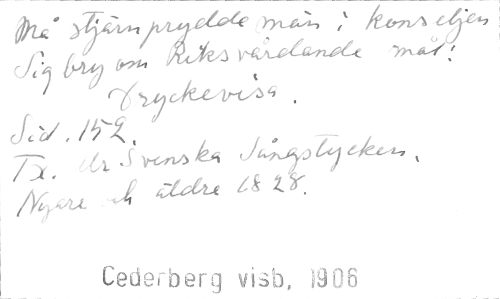 Må stjärnprydde män i konseljen
Sig bry om Riksvårdande mål!
Dryckevisa.
Sid. 152.
Tx. Ur Svenska Sångstycken.
Nyare och äldre 1828.
Cederberg visb. 1906